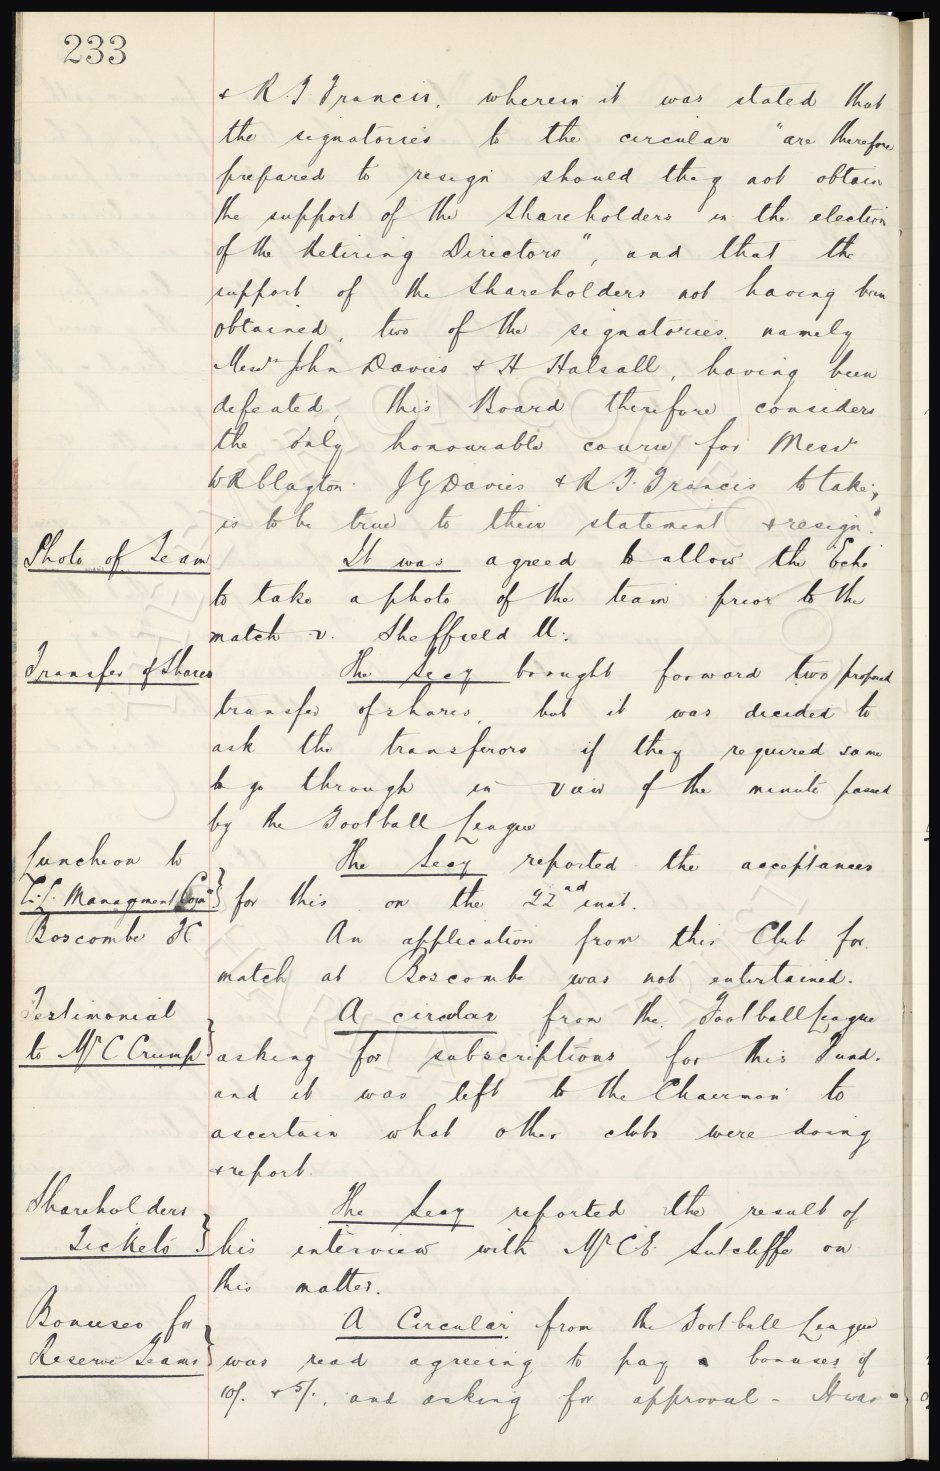 233
& R.T. Francis, wherein it was stated that
the signatories to the circular "are therefore
prepared to resign should they not obtain
the support of the Shareholders in the election
of the Retiring Directors", and that the
support of the Shareholders not having been
obtained, two of the signatories, namely
Messrs John Davies & H Halsall, having been
defeated, this Board therefore considers
the only honourable course for Messrs
W R Clayton J G Davies & R.T. Francis to take,
is to be true to their statement & resign."
Photo of Team
It was agreed to allow the Echo
to take a photo of the team prior to the
match v. Sheffield U.
Transfer of Shares
The Secy brought forward two proposed
transfer of shares, but it was decided to
ask the transferors if they required same
to go through in view of the minute passed
by the Football League
Luncheon to
The Secy reported the acceptances
Managment Com
for this on the 22nd inst.
Boscombe FC
An application from this Club for
match at Boscombe was not entertained.
Testimonial
A circular from the Football League
to Mr C Crump
asking for subscriptions for this Fund.
and it was left to the Chairman to
ascertain what other clubs were doing
& report.
Shareholders
The Secy reported the result of
Tickets
his interview with Mr C E Sutcliffe on
this matter.
Bonuses for
A Circular from the Football League
Reserve Teams
was read agreeing to pay bonuses of
10/. & 5/., and asking for approval - It was